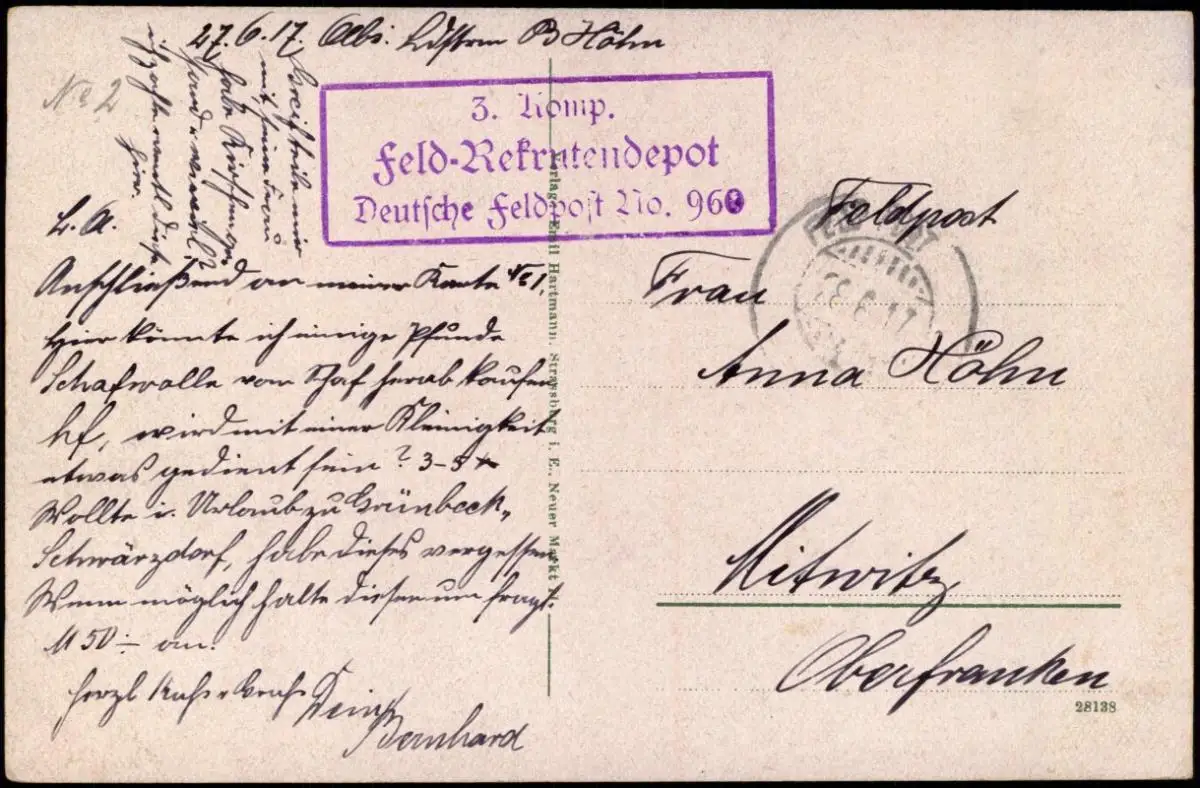 27.6.17. Abs: Ldstrm B Höhn
No 2
3. Komp.
Feld-Rekrutendepot
Deutsche Feldpost No. 960
L. A.
Anschließend an meiner Karte No 1.
Hier könnte ich einige Pfunde
Schafwolle vom Schaf herab kaufen
wird mit einer Kleinigkeit
etwas gedient sein? 3-5
Wollte i. Urlaub zu Grünbeck,
Schwärzdorf, habe dieses vergessen
Wenn möglich halte diesen um fragl.
M 50.- an.
herzl Kuß
Dein
Bernhard
Verlag: Emil Hartmann, Strassburg i. E., Neuer Markt
Feldpost
28.6.17
Frau
Anna Höhn
Mitwitz
Oberfranken
28138